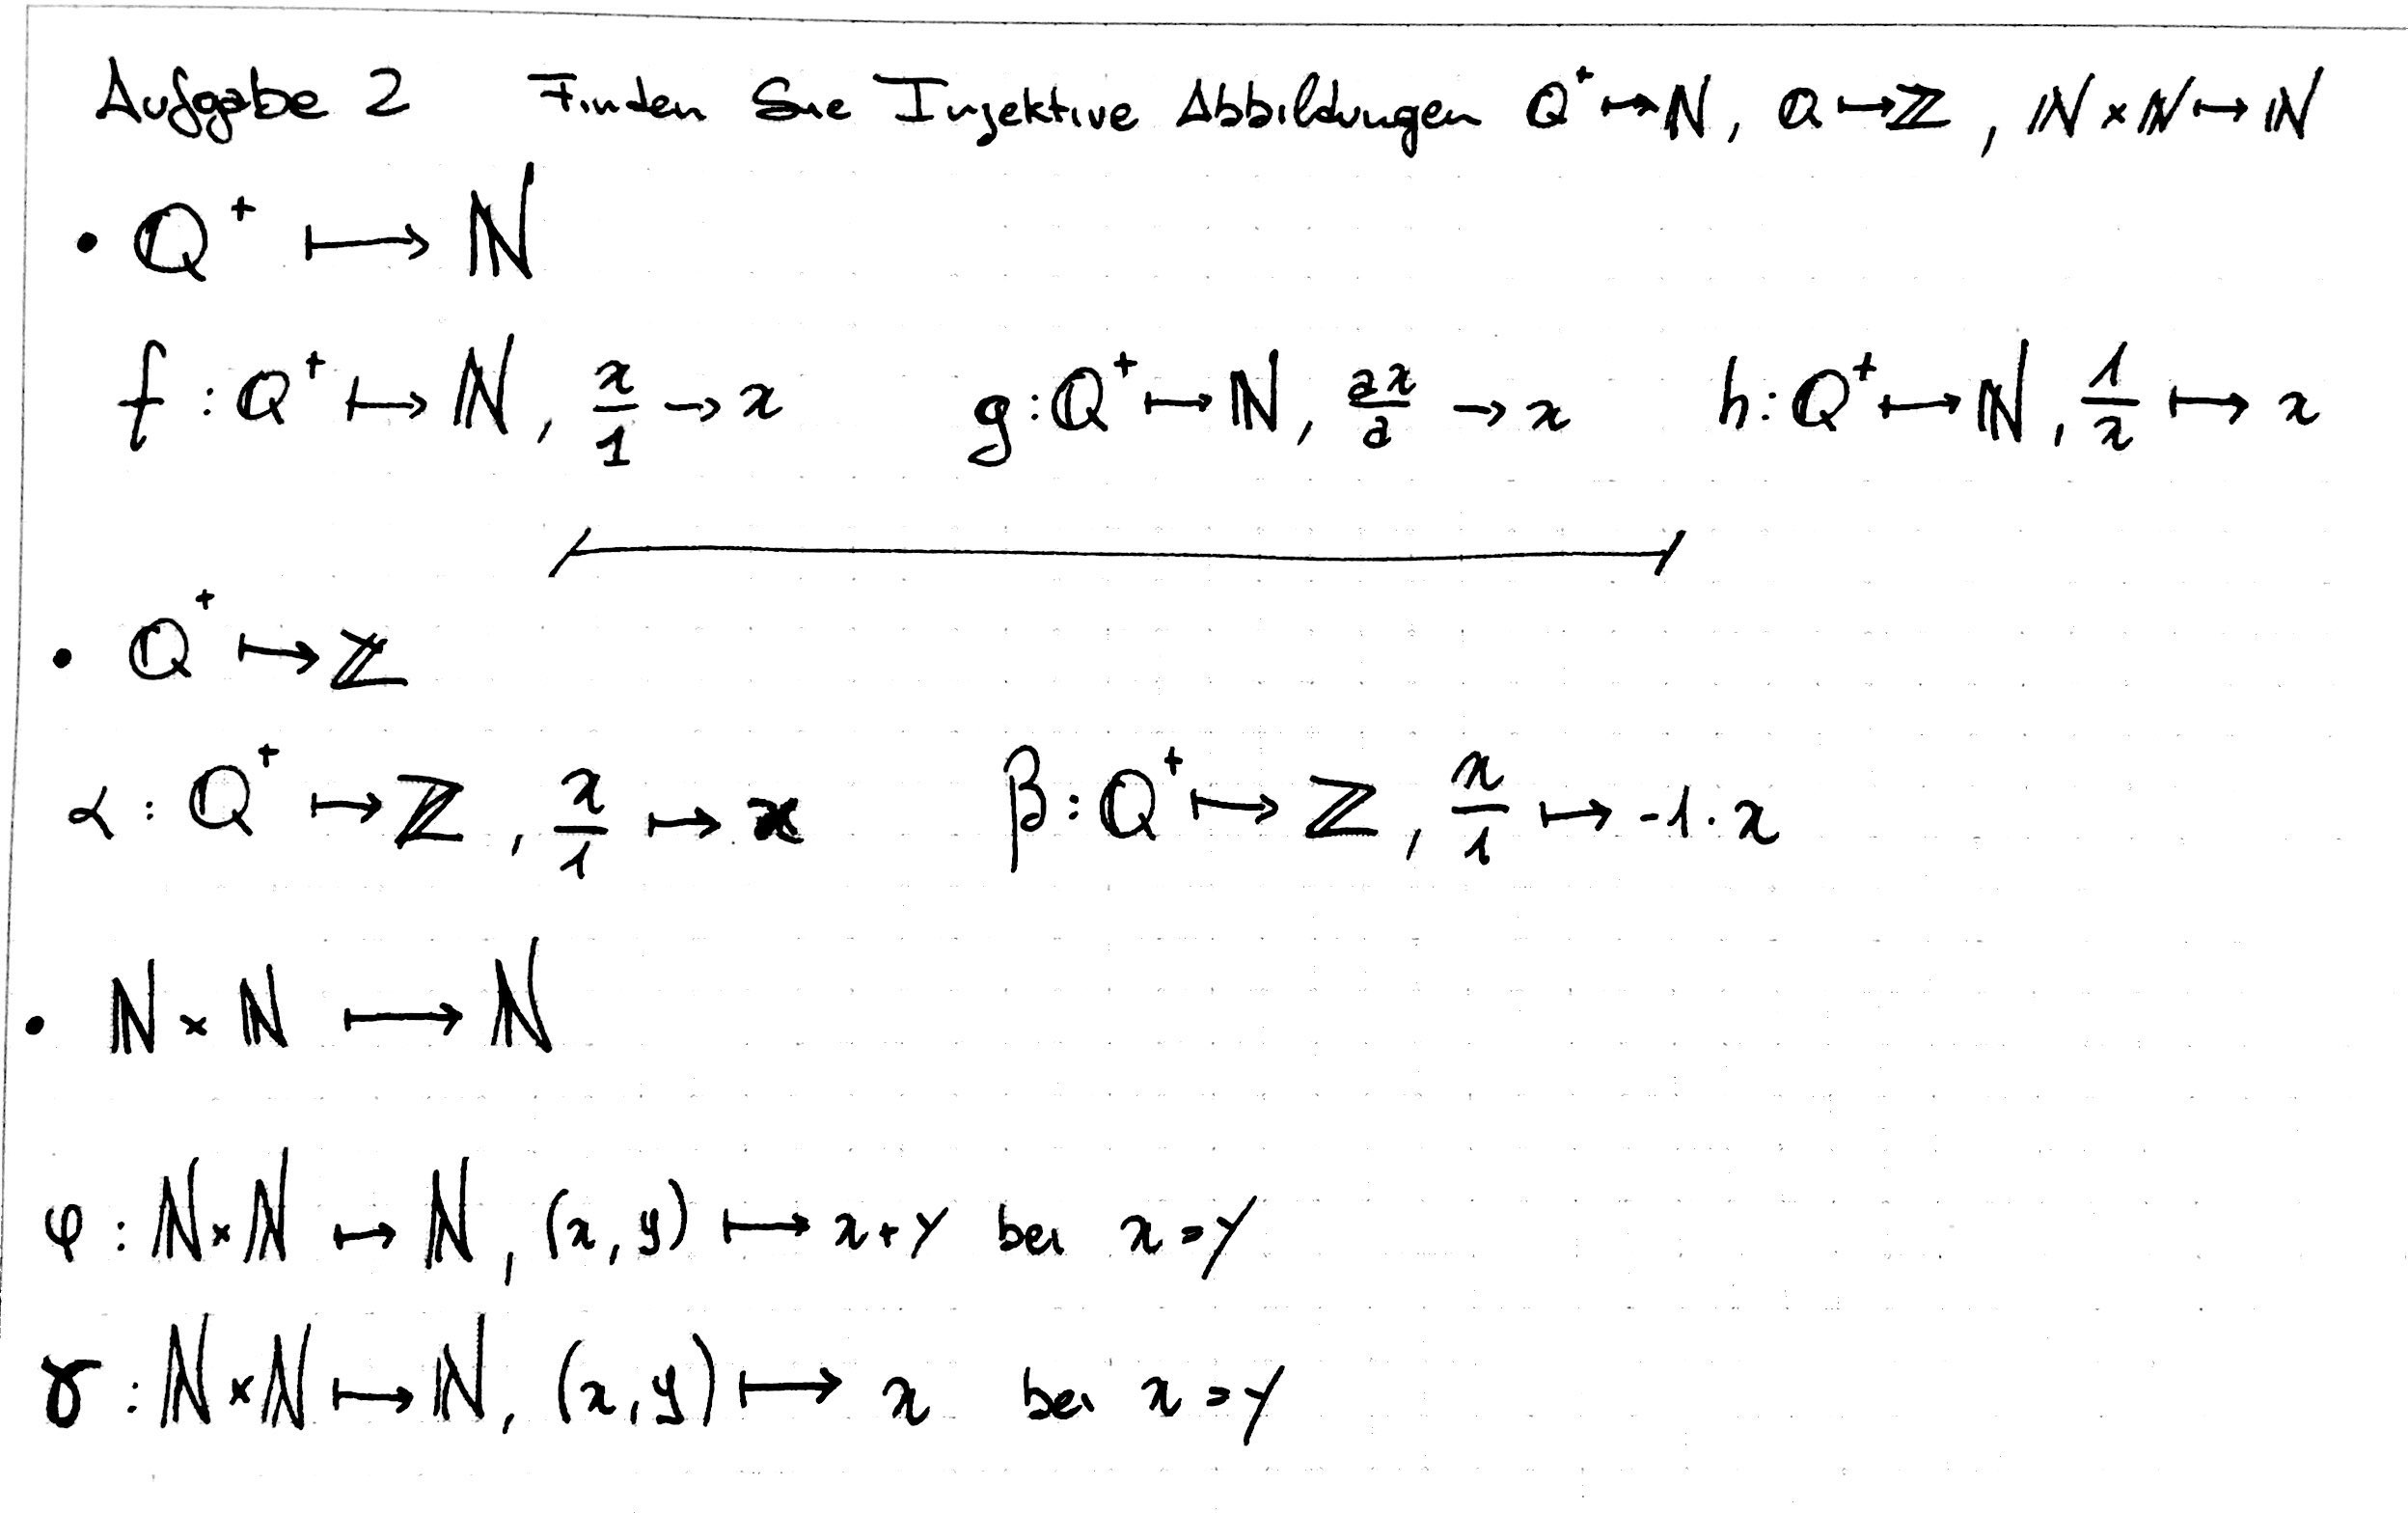 Aufgabe 2 Finden Sie Injektive Abbildungen ℚ⁺ ↦ ℕ, ℚ ↦ ℤ, ℕ × ℕ ↦ ℕ
• ℚ⁺ ⟼ ℕ
f : ℚ⁺ ↦ ℕ, x/1 → x g : ℚ⁺ ↦ ℕ, ax/a → x h : ℚ⁺ ↦ ℕ, 1/x ↦ x
• ℚ⁺ ↦ ℤ
α : ℚ⁺ ↦ ℤ, x/1 ↦ x β : ℚ⁺ ↦ ℤ, x/1 ↦ -1 · x
• ℕ × ℕ ⟼ ℕ
φ : ℕ × ℕ ↦ ℕ, (x, y) ⟼ x + y bei x = y
γ : ℕ × ℕ ↦ ℕ, (x, y) ⟼ x bei x = y